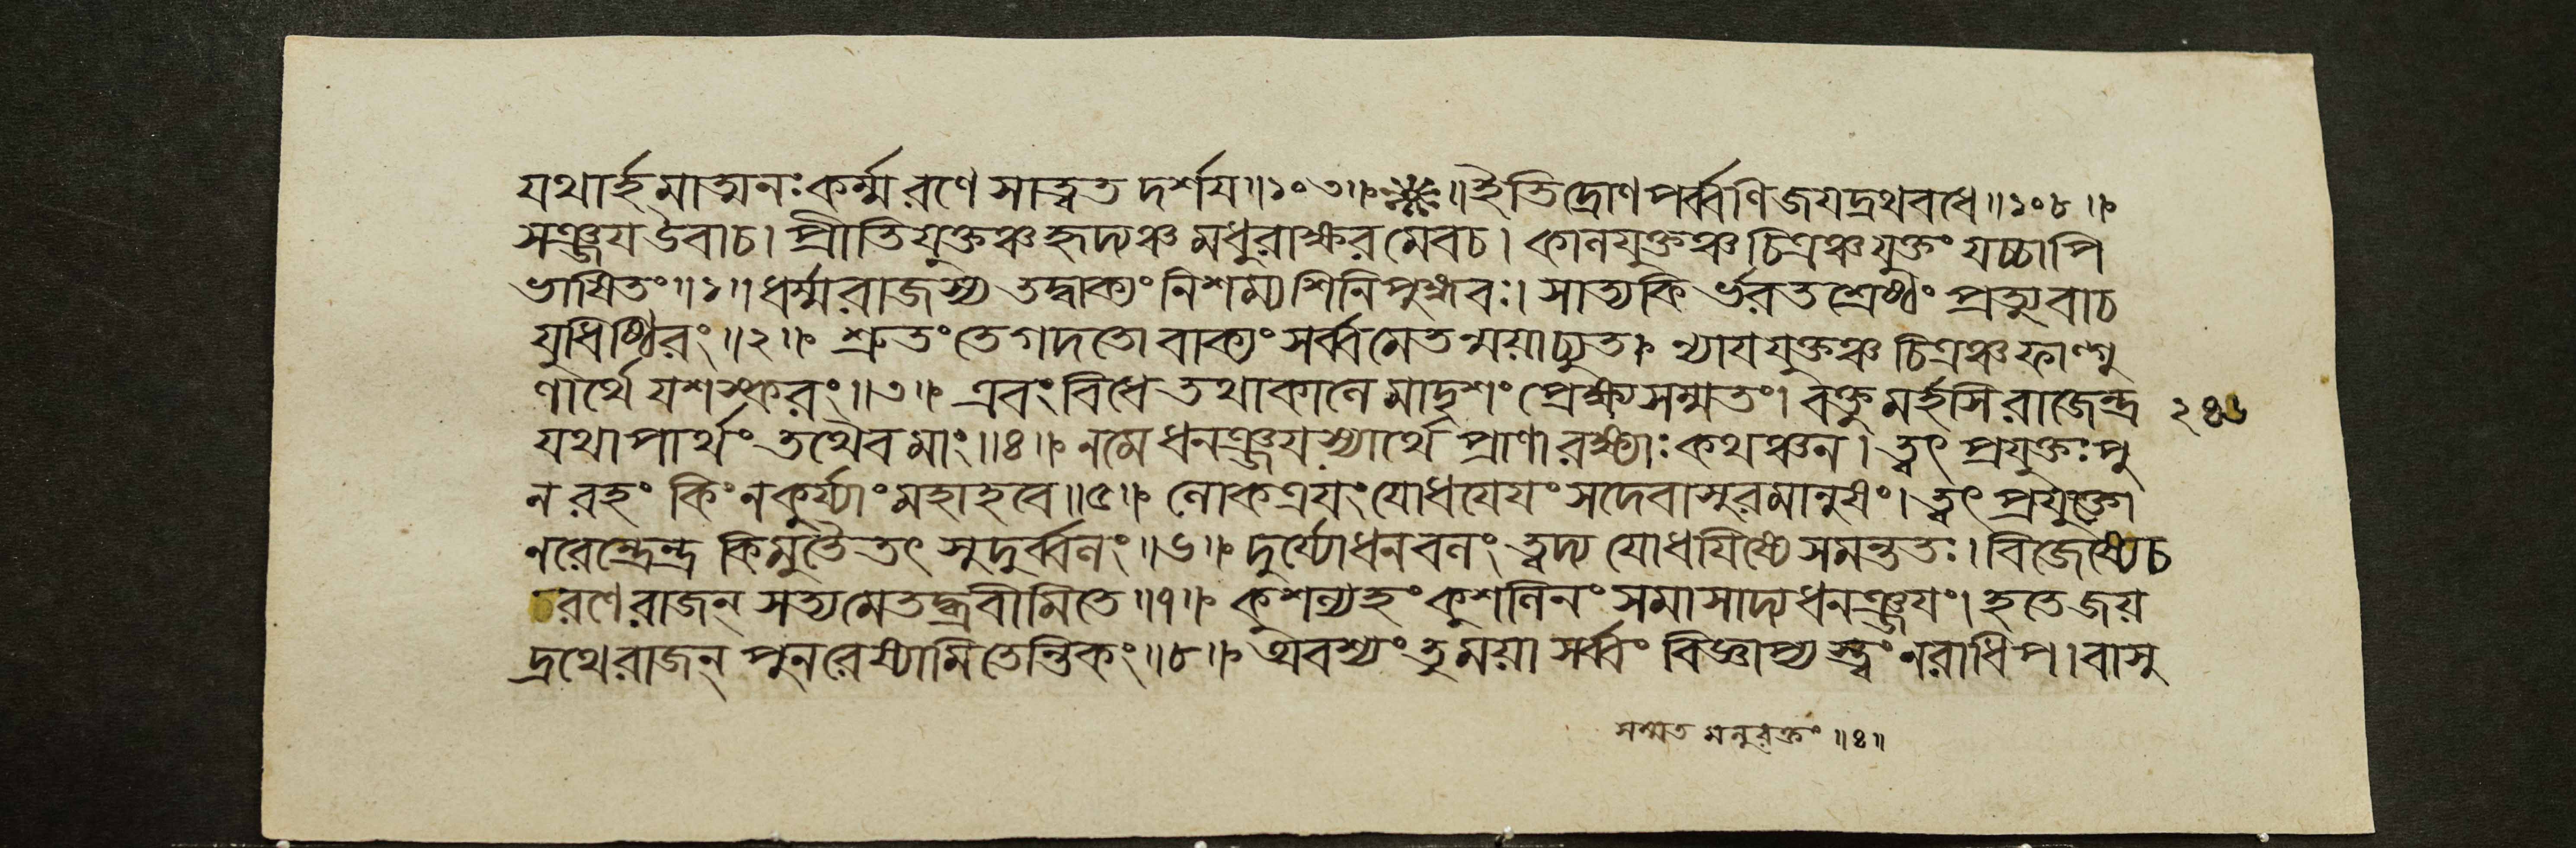 যথার্হমাত্মনঃকর্ম্মরণেসাত্ত্বতদর্শয॥১০৩॥ ॥ইতিদ্রোণপর্ব্বণিজযদ্রথবধে॥১০৮॥
সঞ্জযউবাচ। প্রীতিযুক্তঞ্চহৃদ্যঞ্চমধুরাক্ষরমেবচ। কালযুক্তঞ্চচিত্রঞ্চযুক্তং যচ্চাপি
ভাষিতং॥১॥ধর্ম্মরাজস্য তদ্বাক্যংনিশম্যশিনিপুঙ্গবঃ। সাত্যকির্ভরতশ্রেষ্ঠং প্রত্যুবাচ
যুধিষ্ঠিরং॥২॥ শ্রুতংতেগদতোবাক্যংসর্ব্বমেতন্ময়াচ্যুত। ন্যাযযুক্তঞ্চ চিত্রঞ্চফাল্গু
ণার্থে যশস্করং॥৩॥ এবংবিধে তথাকালে মাদৃশংপ্রেক্ষ্যসম্মতং। বক্তুমর্হসিরাজেন্দ্র ২৪৬
যথাপার্থং তথৈবমাং॥৪॥ নমেধনঞ্জযস্যার্থে প্রাণারক্ষ্যাঃকথঞ্চন। ত্বৎ প্রযুক্তঃপু
নরহং কিংনকুর্য্যাংমহাহবে॥৫॥ লোকত্রযংযোধযেযংসদেবাসুরমানুষং। ত্বৎপ্রযুক্তো
নরেন্দ্রেন্দ্র কিমুতৈতৎসুদুর্ব্বলং॥৬॥ দুর্য্যোধনবলং ত্বদ্য যোধযিষ্যেসমন্ততঃ। বিজেষ্যেচ
রণেরাজন্ সত্যমেতদ্ব্রবীমিতে॥৭॥ কুশল্যহংকুশলিনংসমাসাদ্যধনঞ্জযং। হতেজয়
দ্রথেরাজন্ পুনরেষ্যামিতেন্তিকং॥৮॥ অবশ্যংতুময়া সর্ব্বংবিজ্ঞাপ্যস্ত্বংনরাধিপ। বাসু
সম্মত মনুরক্তং॥৪॥